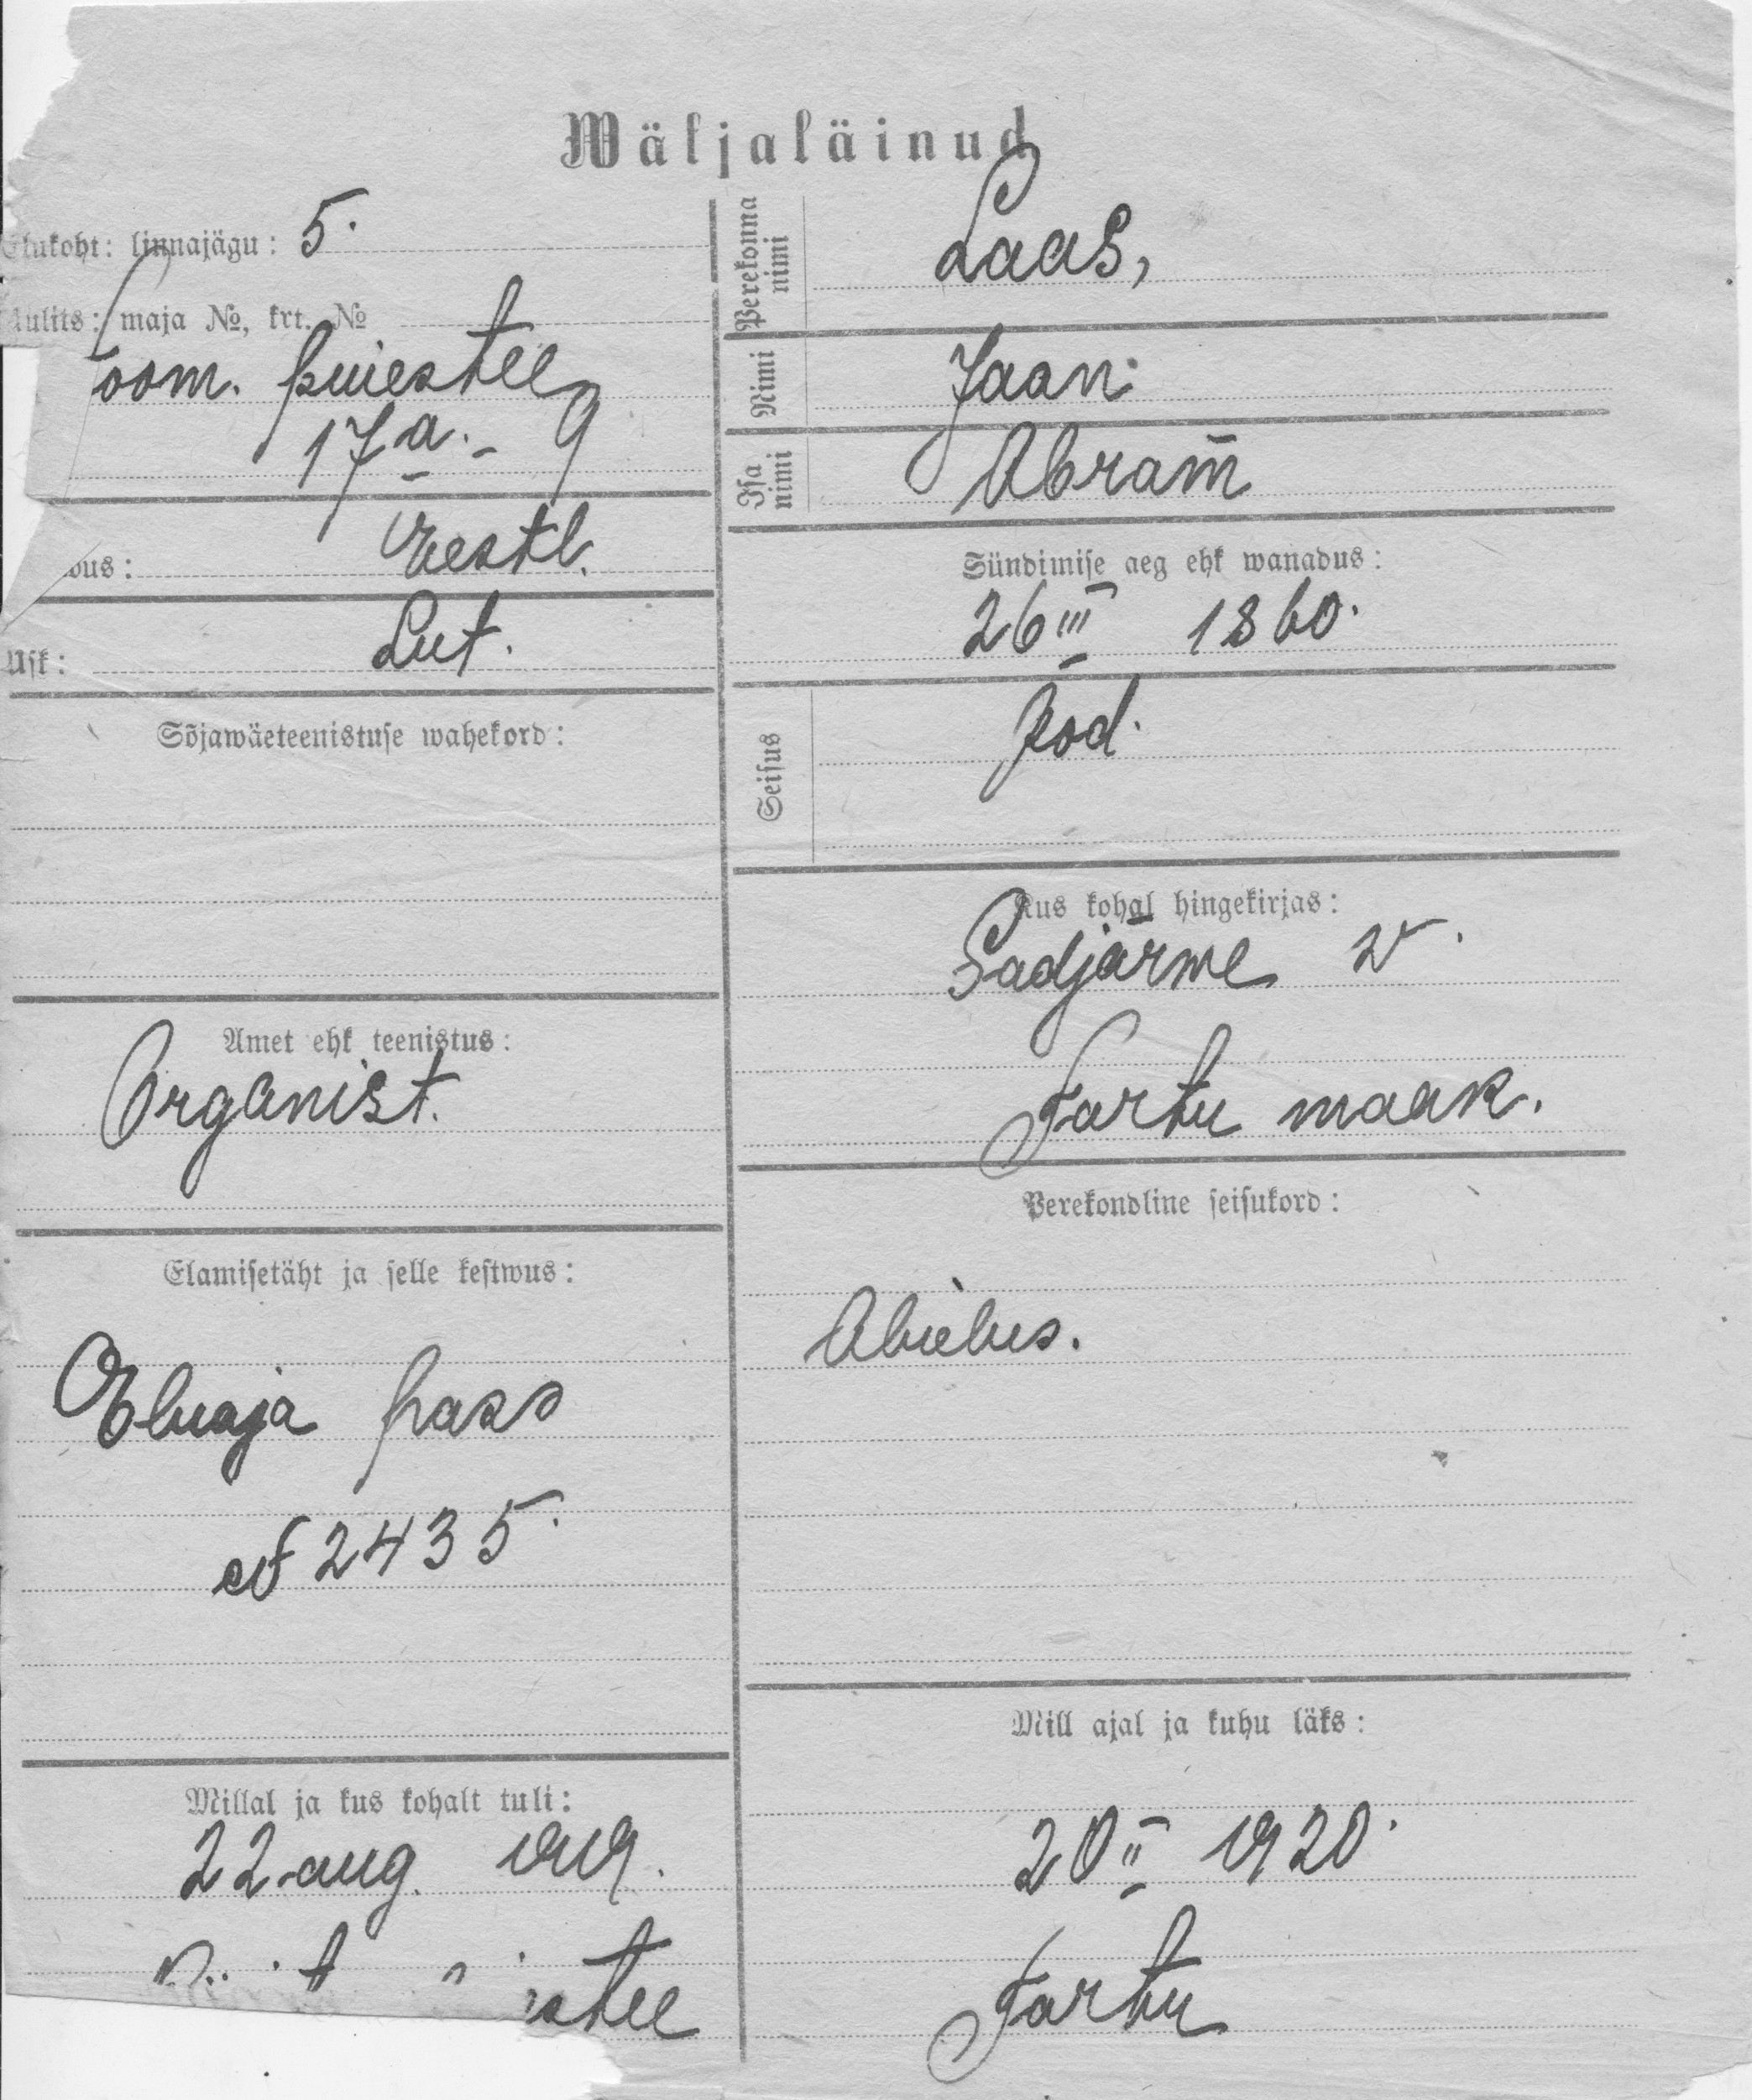 Wäljaläinud
Elukoht: linnajägu: 5.
Uulits: maja №, krt. №
Toom. puiestee
17a. - 9
wus: Eestl.
Usk: Lut.
Sõjawäeteenistuse wahekord:
Amet ehk teenistus:
Organist.
Elamisetäht ja selle kestwus:
Eluaja pass
№ 2435.
Millal ja kus kohalt tuli:
22 aug. 1919.
Perekonna nimi Laas,
Nimi Jaan
Isa nimi Abram
Sündimise aeg ehk wanadus:
26 III 1860.
Seisus
Kus kohal hingekirjas:
Sadjärwe w.
Tartu maak.
Perekondline seisukord:
Abielus.
Mill ajal ja kuhu läks:
20 II 1920.
Tartu